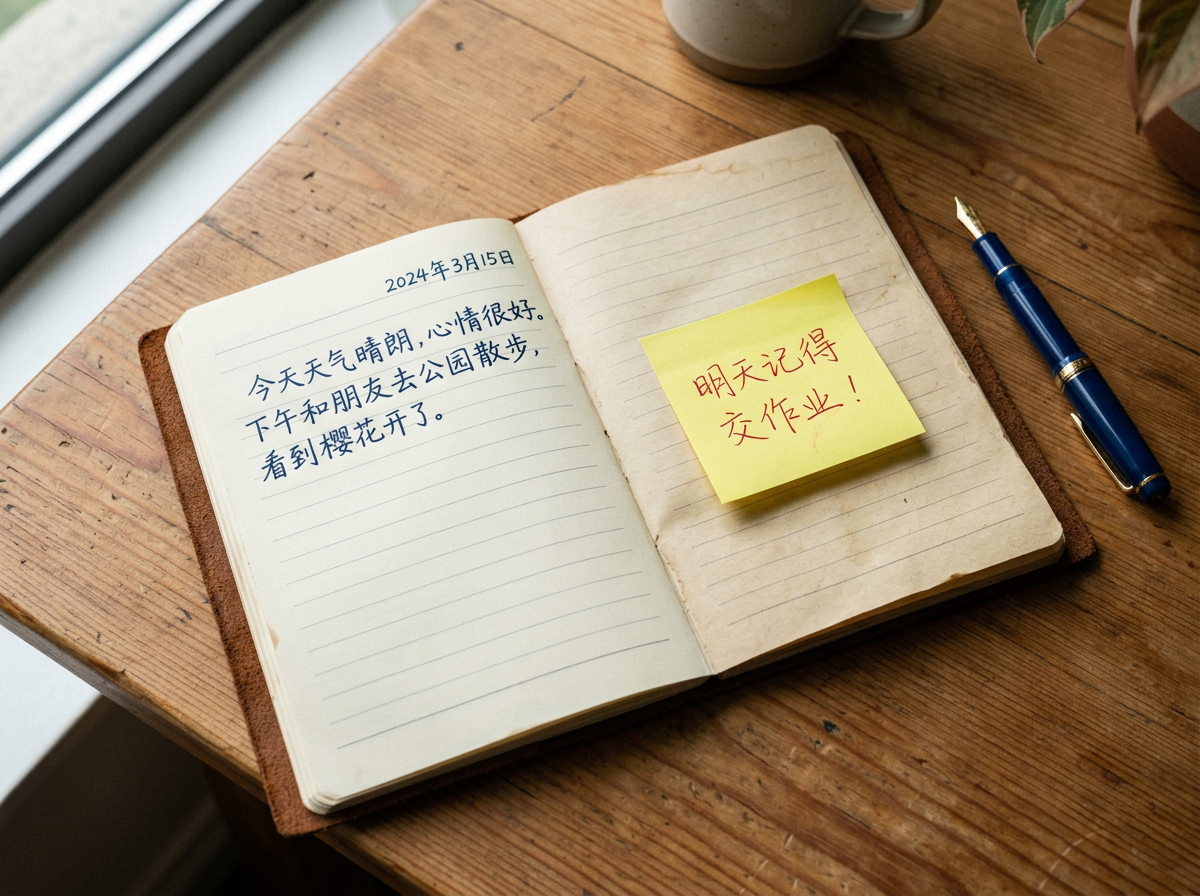 2024年3月15日
今天天气晴朗,心情很好。
下午和朋友去公园散步,
看到樱花开了。
明天记得
交作业！